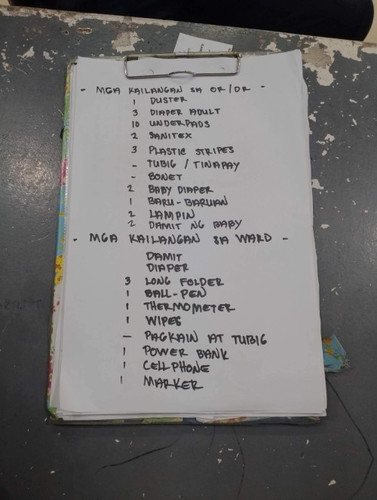 - MGA KAILANGAN SA OR/DR -
1 DUSTER
3 DIAPER ADULT
10 UNDERPADS
2 SANITEX
3 PLASTIC STRIPES
- TUBIG / TINAPAY
- BONET
2 BABY DIAPER
1 BARU-BARUAN
2 LAMPIN
2 DAMIT NG BABY
- MGA KAILANGAN SA WARD -
DAMIT
DIAPER
3 LONG FOLDER
1 BALL-PEN
1 THERMOMETER
1 WIPES
- PAGKAIN AT TUBIG
1 POWER BANK
1 CELLPHONE
1 MARKER